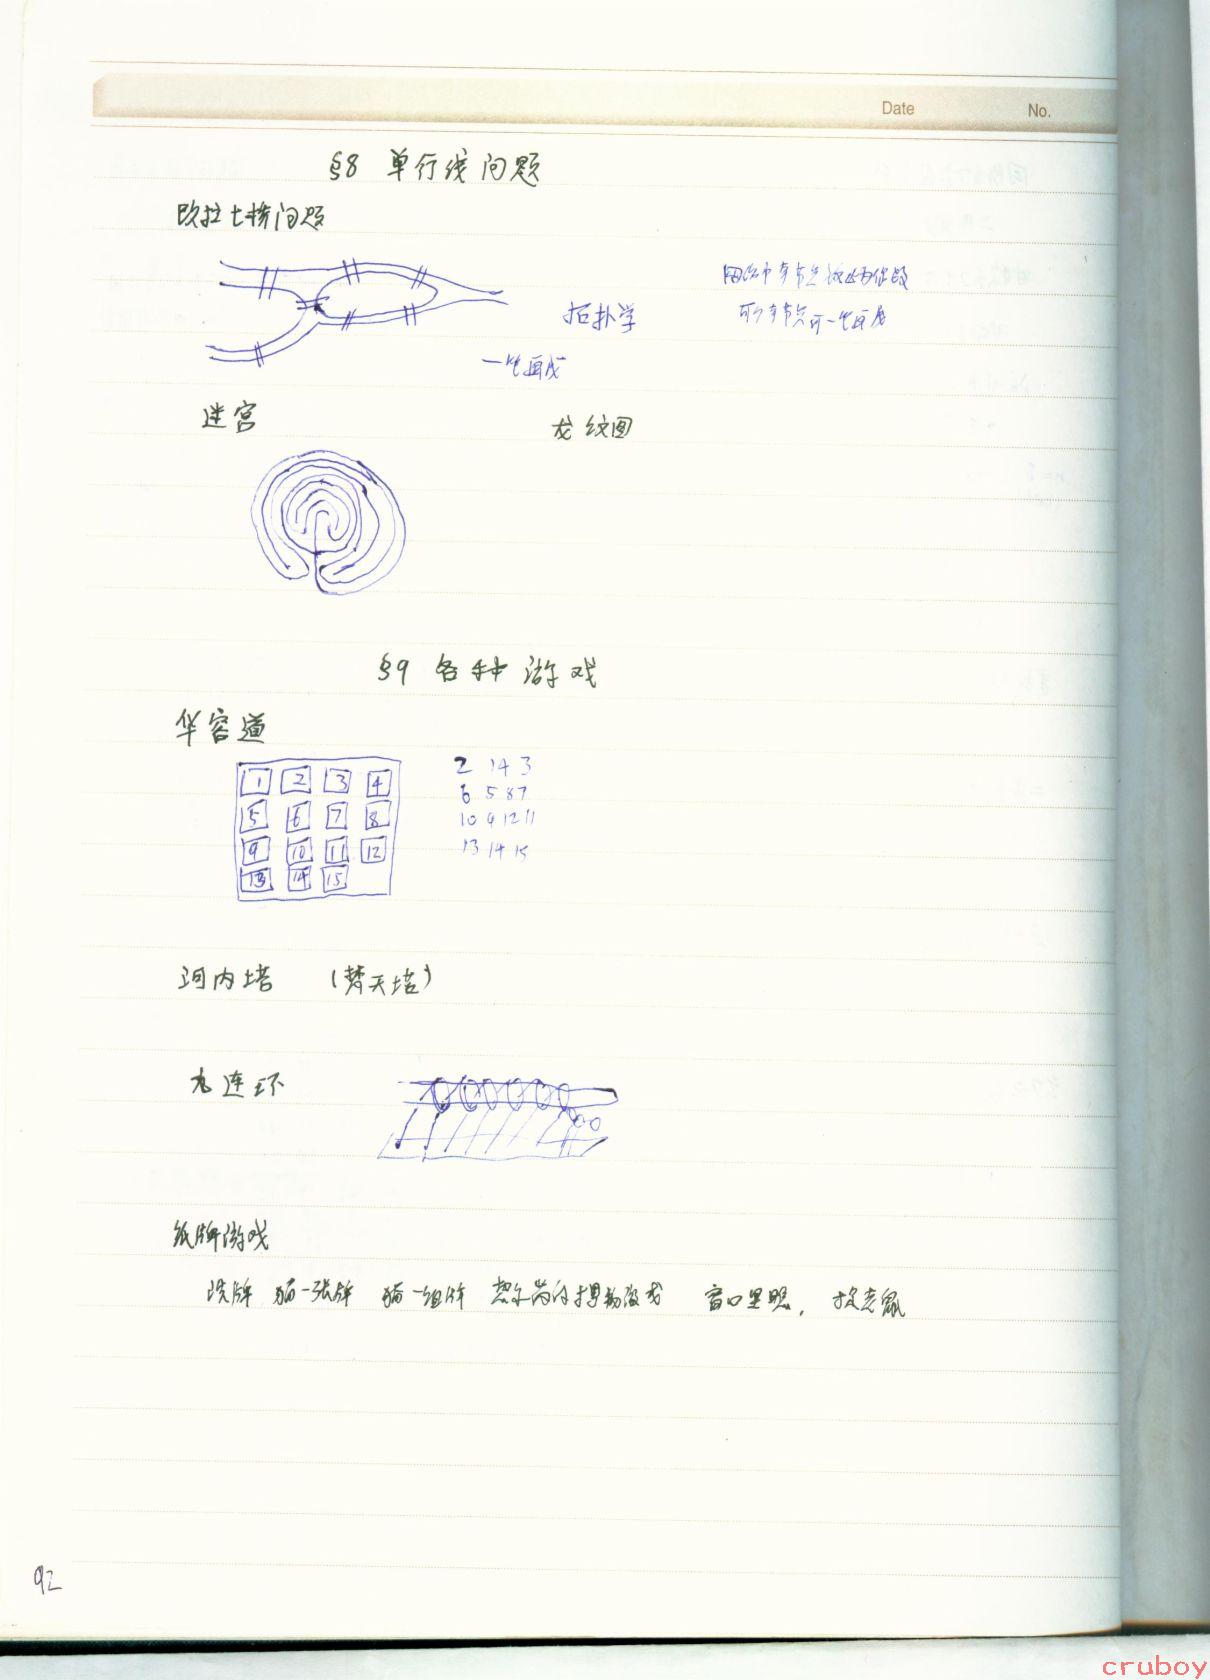 Date No.
§8 单行线问题
欧拉七桥问题
网络中奇节点
拓扑学 两个奇节点可一笔画成
一笔画成
迷宫 龙纹图
§9 各种游戏
华容道
1 2 3 4 2 1 4 3
5 6 7 8 6 5 8 7
9 10 11 12 10 9 12 11
13 14 15 13 14 15
河内塔 (梵天塔)
九连环
纸牌游戏
洗牌 猜一张牌 猜一组牌 窗口里 捉老鼠
92
cruboy